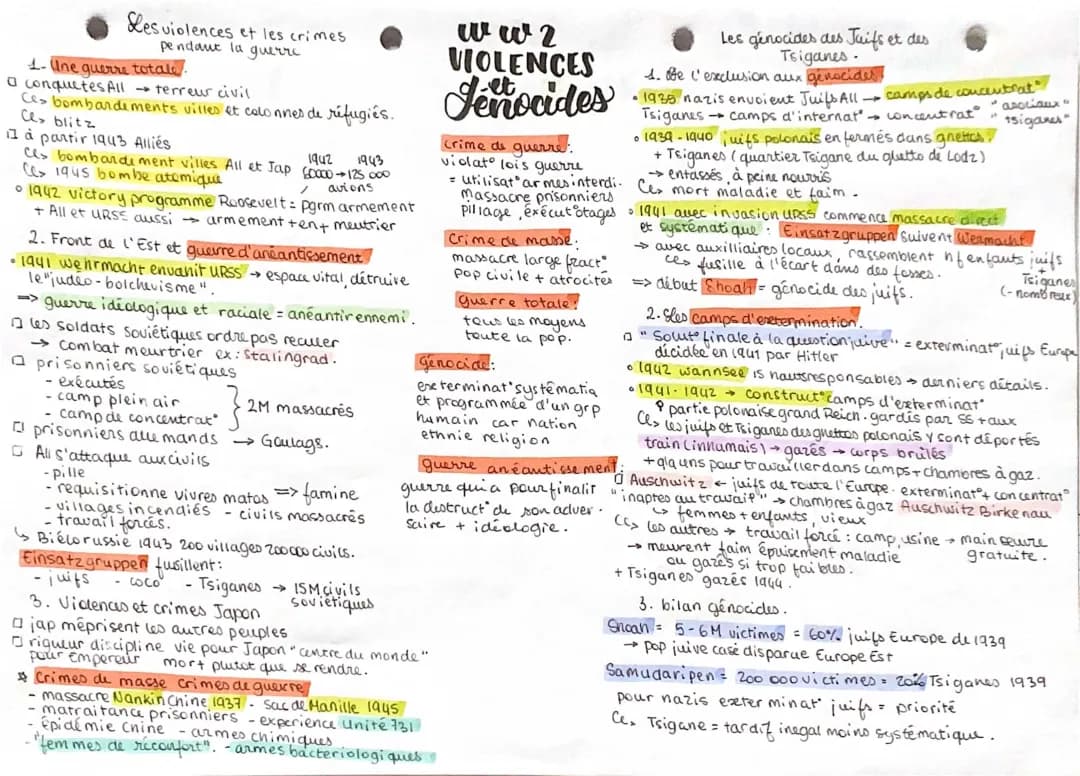 Les violences et les crimes
pendant la guerre
1. Une guerre totale.
□ conquêtes All → terreur civil
↳ bombardements villes et colonnes de réfugiés.
↳ blitz
□ à partir 1943 Alliés
↳ bombardement villes All et Jap
↳ 1945 bombe atomique
1942 1943
60000 → 125 000
avions
• 1942 victory programme Roosevelt = pgrm armement
+ All et URSS aussi → armement + en + meutrier
2. Front de l'Est et guerre d'anéantissement
• 1941 wehrmacht envahit URSS → espace vital, détruire
le "judéo-bolchevisme".
=> guerre idéologique et raciale = anéantir ennemi.
□ les soldats soviétiques ordre pas reculer
→ combat meurtrier ex: Stalingrad.
□ prisonniers soviétiques
- exécutés
- camp plein air
- camp de concentrat°
} 2M massacrés
□ prisonniers allemands → Goulags.
□ All s'attaque aux civils
- pille
- requisitionne vivres matos => famine
- villages incendiés - civils massacrés
- travail forcés.
↳ Biélorussie 1943 200 villages 200 000 civils.
Einsatzgruppen fusillent:
- juifs - coco - Tsiganes → 15M civils
soviétiques
3. Violences et crimes Japon
□ jap méprisent les autres peuples
□ rigueur discipline vie pour Japon "centre du monde"
pour empereur mort plutot que se rendre.
☆ Crimes de masse Crimes de guerre
- massacre Nankin Chine 1937 - sac de Manille 1945
- matraitance prisonniers - experience Unité 731
- Épidémie Chine - armes chimiques
- "femmes de réconfort". - armes bactériologiques
WW2
VIOLENCES
et
Génocides
Crime de guerre:
violat° lois guerre
= utilisat° armes interdi.
massacre prisonniers
pillage, exécut° otages
Crime de masse:
massacre large fract°
pop civile + atrocités
Guerre totale:
tous les moyens
toute la pop.
génocide:
exterminat° systématiq
et programmée d'un grp
humain car nation
ethnie religion
guerre anéantissement:
guerre qui a pour finalir
la destruct° de son adver.
saire + idéologie.
Les génocides des Juifs et des
Tsiganes.
1. De l'exclusion aux génocides.
• 1938 nazis envoient Juifs All → camps de concentrat°
Tsiganes → camps d'internat° → concentrat° "asociaux"
"tsiganes"
• 1939-1940 juifs polonais enfermés dans ghettos.
+ Tsiganes (quartier Tsigane du ghetto de Lodz)
→ entassés, à peine nourris
↳ mort maladie et faim.
• 1941 avec invasion URSS commence massacre direct
et systématique: Einsatzgruppen suivent Wermacht
→ avec auxilliaires locaux, rassemblent hf enfants juifs
+
Tsiganes
(- nombreux)
↳ fusille à l'écart dans des fosses.
=> début Shoah = génocide des juifs.
2. Les camps d'extermination.
□ "Solut° finale à la question juive" = exterminat° juifs Europe
décidée en 1941 par Hitler
• 1942 wannsee 15 hauts responsables → derniers détails.
• 1941-1942 → construct° camps d'exterminat°
partie polonaise grand Reich. gardés par SS + aux
↳ les juifs et Tsiganes des ghettos polonais y sont déportés
train (inhumais) → gazés → corps brûlés
+ qlq uns pour travailler dans camps + chambres à gaz.
□ Auschwitz ← juifs de toute l'Europe. exterminat° + concentrat°
"inaptes au travail" → chambres à gaz Auschwitz Birkenau
↳ femmes + enfants, vieux
↳ les autres → travail forcé: camp, usine → main œuvre
gratuite.
→ meurent faim épuisement maladie
ou gazés si trop faibles.
+ Tsiganes gazés 1944.
3. bilan génocides.
Shoah = 5-6M victimes = 60% juifs Europe de 1939
→ pop juive casé disparue Europe Est
Samudaripen = 200 000 victimes = 20% Tsiganes 1939
pour nazis exterminat° juifs = priorité
↳ Tsigane = tardif inegal moins systématique.